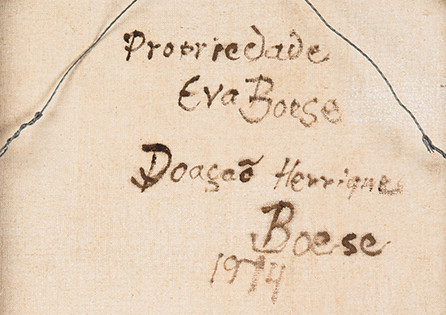 Propriedade
Eva Boese
Doação Henriques
Boese
1974